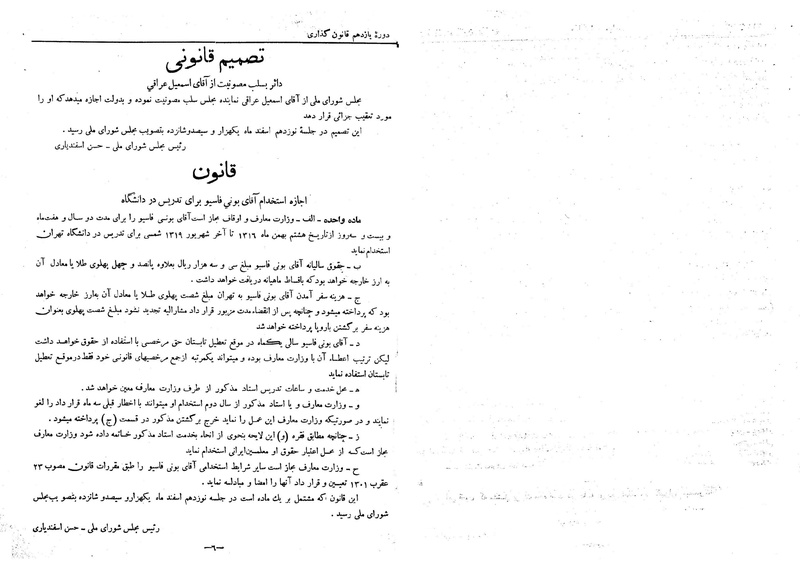 دورهٔ یازدهم قانون گذاری
تصمیم قانونی
دائر بسلب مصونیت از آقای اسمعیل عراقی
مجلس شورای ملی از آقای اسمعیل عراقی نماینده مجلس سلب مصونیت نموده و بدولت اجازه میدهد که او را
مورد تعقیب جزائی قرار دهد
این تصمیم در جلسهٔ نوزدهم اسفند ماه یکهزار و سیصد و شانزده بتصویب مجلس شورای ملی رسید .
رئیس مجلس شورای ملی – حسن اسفندیاری
قانون
اجازه استخدام آقای بونی فاسیو برای تدریس در دانشگاه
ماده واحده – الف – وزارت معارف و اوقاف مجاز است آقای بونی فاسیو را برای مدت دو سال و هفت ماه
و بیست و سه روز از تاریخ هشتم بهمن ماه ۱۳۱۶ تا آخر شهریور ۱۳۱۹ شمسی برای تدریس در دانشگاه تهران
استخدام نماید
ب – حقوق سالیانه آقای بونی فاسیو مبلغ سی و سه هزار ریال بعلاوه پانصد و چهل پهلوی طلا یا معادل آن
به ارز خارجه خواهد بود که باقساط ماهیانه دریافت خواهد داشت .
ج – هزینه سفر آمدن آقای بونی فاسیو به تهران مبلغ شصت پهلوی طلا یا معادل آن به ارز خارجه خواهد
بود که پرداخته میشود و چنانچه پس از انقضاء مدت مزبور قرار داد مشارالیه تجدید نشود مبلغ شصت پهلوی بعنوان
هزینه سفر برگشتن باروپا پرداخته خواهد شد
د – آقای بونی فاسیو سالی یکماه در موقع تعطیل تابستان حق مرخصی با استفاده از حقوق خواهد داشت
لیکن ترتیب اعطاء آن با وزارت معارف بوده و میتواند یکمرتبه از جمع مرخصیهای قانونی خود فقط در موقع تعطیل
تابستان استفاده نماید
ه – محل خدمت و ساعات تدریس استاد مذکور از طرف وزارت معارف معین خواهد شد .
و – وزارت معارف و یا استاد مذکور از سال دوم استخدام او میتواند با اخطار قبلی سه ماه قرار داد را لغو
نمایند و در صورتیکه وزارت معارف این عمل را نماید خرج برگشتن مذکور در قسمت (ج) پرداخته میشود .
ز – چنانچه مطابق فقره (و) این لایحه بنحوی از انحاء بخدمت استاد مذکور خاتمه داده شود وزارت معارف
مجاز است که از محل اعتبار حقوق او معلمین ایرانی استخدام نماید
ح – وزارت معارف مجاز است سایر شرایط استخدامی آقای بونی فاسیو را طبق مقررات قانون مصوب ۲۳
عقرب ۱۳۰۱ تعیین و قرار داد آنها را امضا و مبادله نماید .
این قانون که مشتمل بر یك ماده است در جلسه نوزدهم اسفند ماه یکهزار و سیصد و شانزده بتصویب مجلس
شورای ملی رسید .
رئیس مجلس شورای ملی – حسن اسفندیاری
–۶–